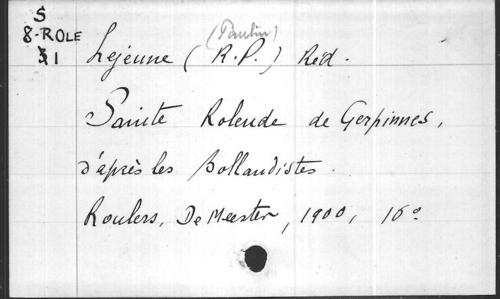 S
8-ROLE
1
(Paulin)
Lejeune (R.P.) Réd.
Sainte Rolende de Gerpinnes,
d'après les Bollandistes.
Roulers, De Meester, 1900, 16°